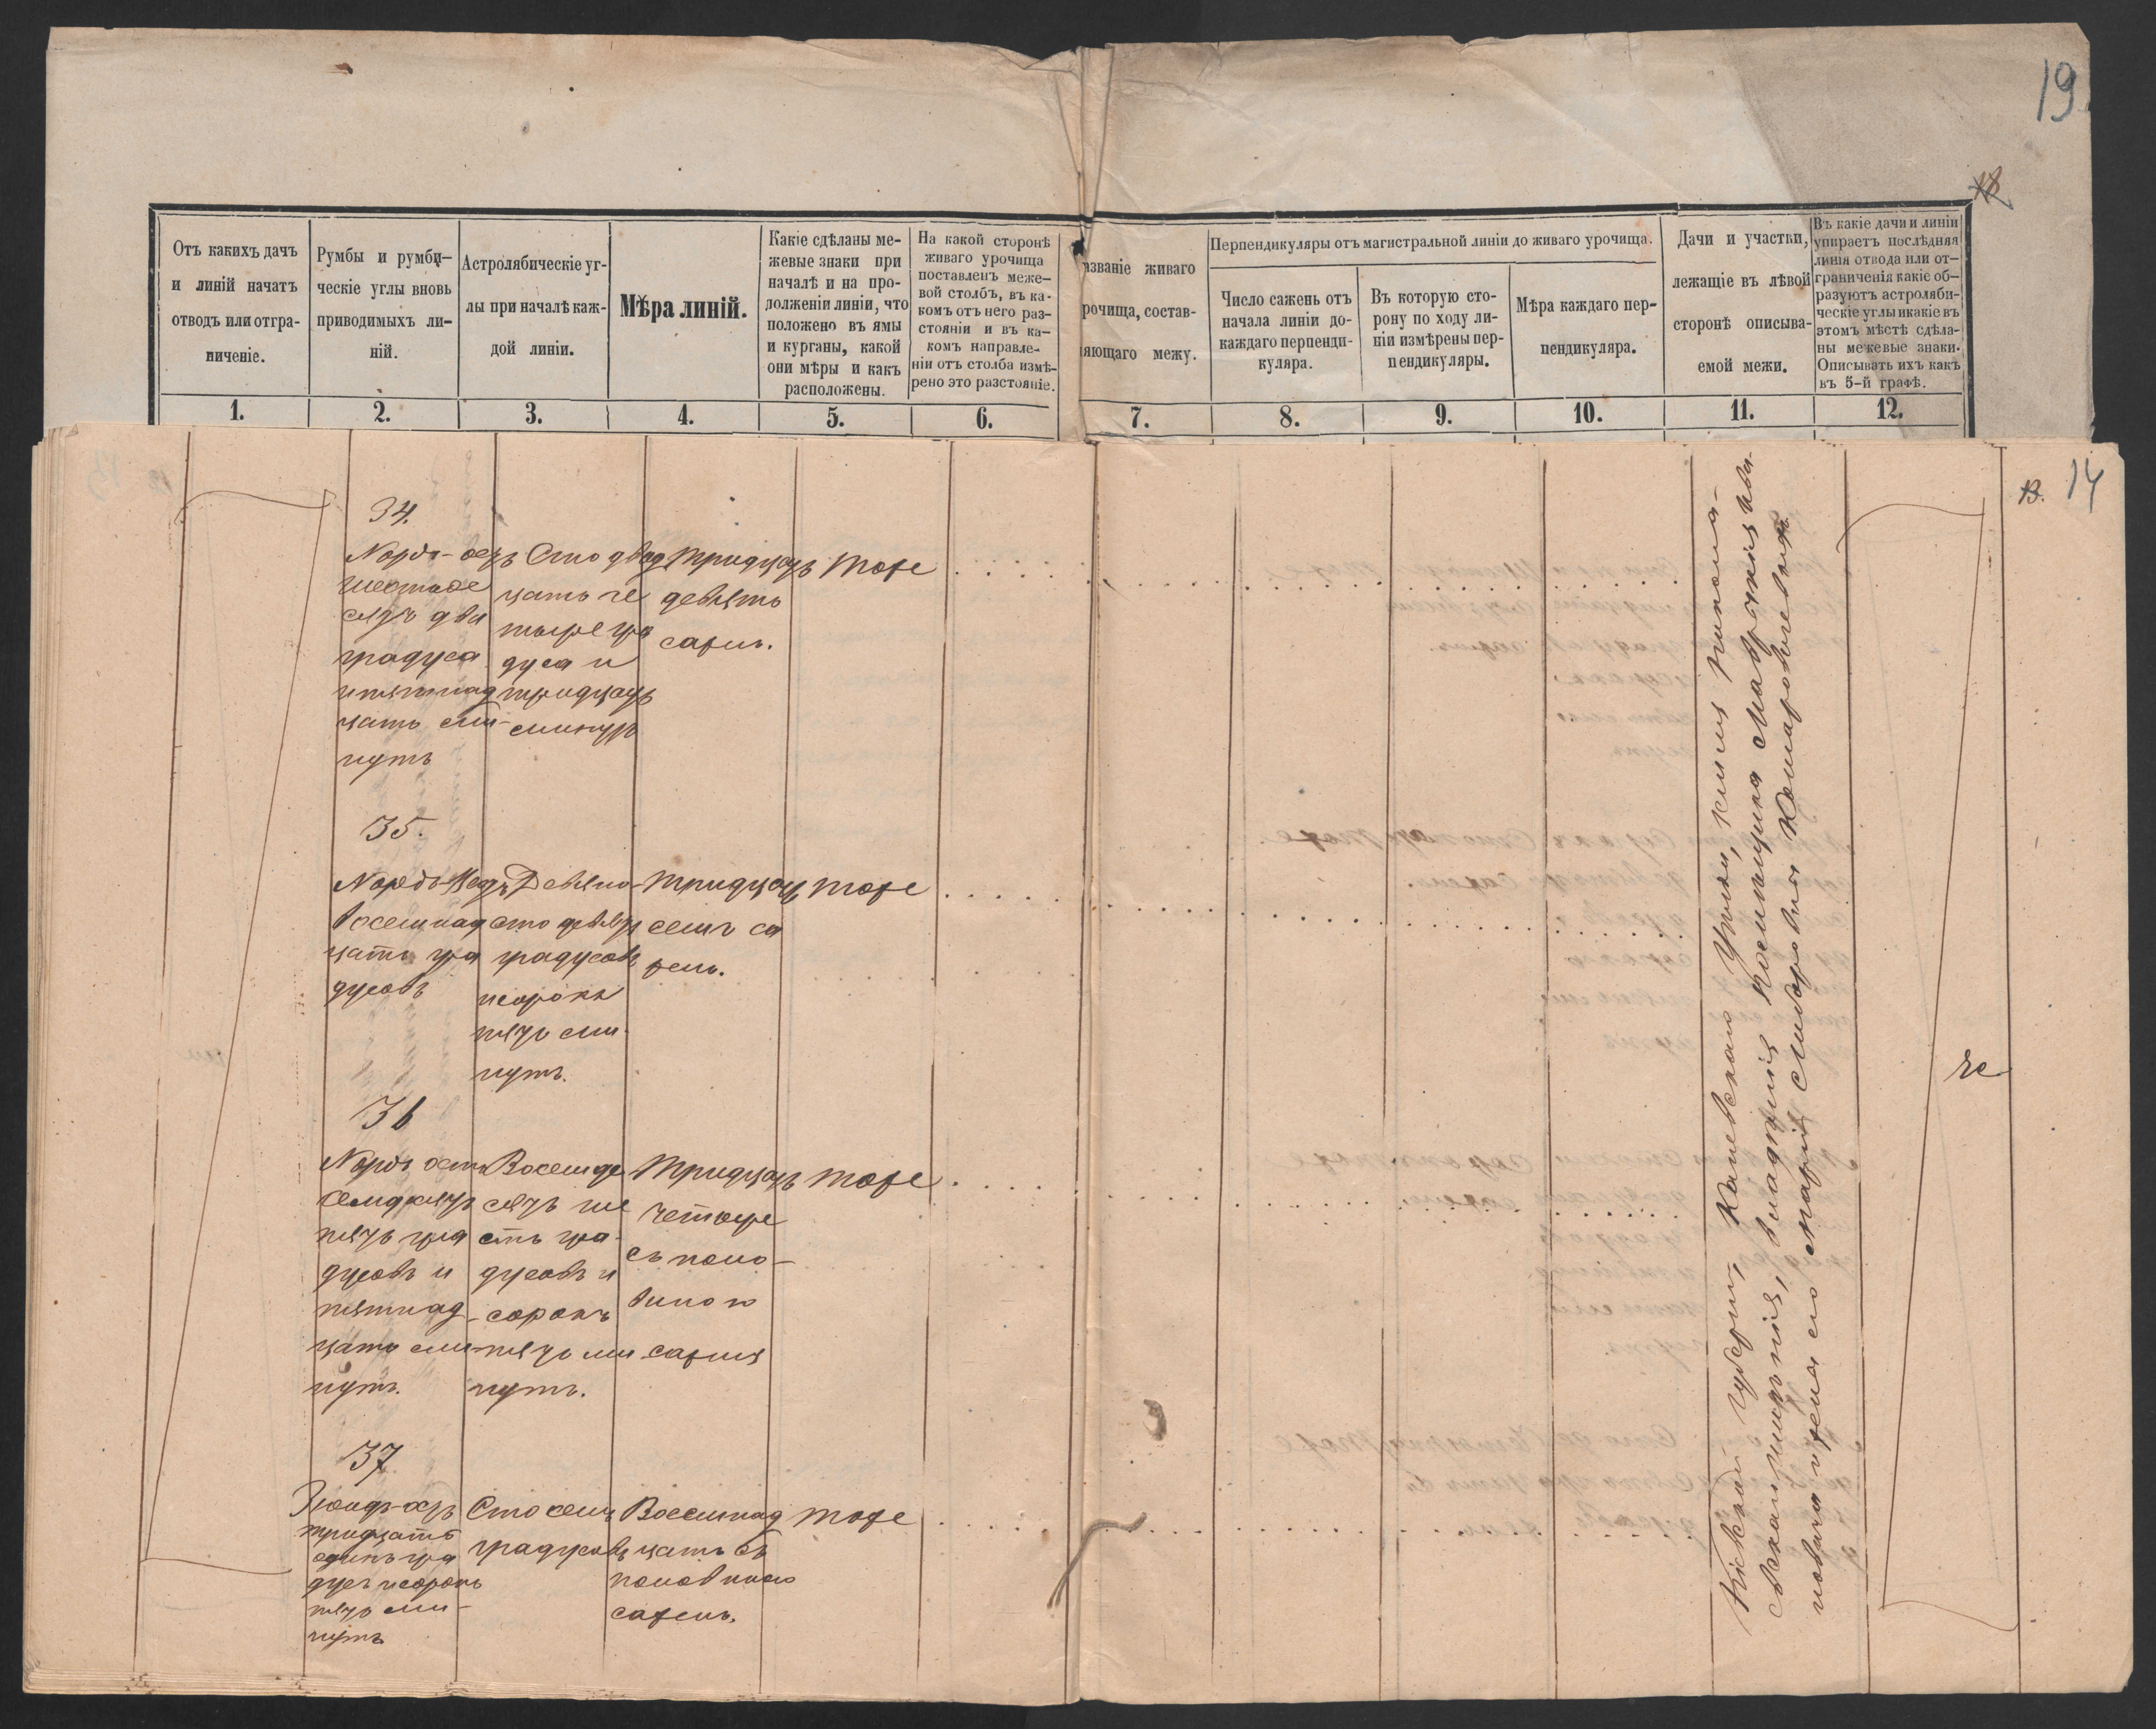 19
18
Отъ какихъ дачъ
и линій начатъ
отводъ или отгра-
ниченіе.
Румбы и румби-
ческіе углы вновь
приводимыхъ ли-
ній.
Астролябическіе уг-
лы при началѣ каж-
дой линіи.
Мѣра линій.
Какіе сдѣланы ме-
жевые знаки при
началѣ и на про-
долженіи линіи, что
положено въ ямы
и курганы, какой
они мѣры и какъ
расположены.
На какой сторонѣ
живаго урочища
поставленъ меже-
вой столбъ, въ ка-
комъ отъ него раз-
стояніи и въ ка-
комъ направле-
ніи отъ столба измѣ-
рено это разстояніе.
азваніе живаго
рочища, состав-
яющаго межу.
Перпендикуляры отъ магистральной линіи до живаго урочища.
Число сажень отъ
начала линіи до-
каждаго перпенди-
куляра.
Въ которую сто-
рону по ходу ли-
ніи измѣрены пер-
пендикуляры.
Мѣра каждаго пер-
пендикуляра.
Дачи и участки,
лежащіе въ лѣвой
сторонѣ описыва-
емой межи.
Въ какіе дачи и линіи
упираетъ послѣдняя
линія отвода или от-
граниченія какіе об-
разуютъ астроляби-
ческіе углы и какіе въ
этомъ мѣстѣ сдѣла-
ны межевые знаки.
Описывать ихъ какъ
въ 5-й графѣ.
1. 2. 3. 4. 5. 6. 7. 8. 9. 10. 11. 12.
13. 14
34.
Нордъ-остъ
шестьде
сятъ два
градуса
и пятнад
цать ми-
нутъ
Сто двад
цать че
тыре гра
дуса и
тридцать
минутъ
Тридцать
девять
сажень.
тоже
35.
Нордъ-Вестъ
восемнад
цать гра
дусовъ
Девяно-
сто девять
градусовъ
и сорокъ
пять ми-
нутъ.
Тридцать
семь са
жень.
тоже
36
Нордъ остъ
семдесятъ
пять гра
дусовъ и
пятнад
цать ми-
нутъ.
Восемде
сятъ ше
сть гра-
дусовъ и
сорокъ
пять ми
нутъ.
Тридцать
четыре
съ поло-
виною
сажня
тоже
37
Зюйдъ-остъ
тридцать
одинъ гра
дусъ и сорокъ
пять ми-
нутъ
Сто семь
градусовъ
Восемнад
цать съ
половиною
сажень.
тоже
Кіевской губерніи Каневскаго Уѣзда,
владѣнія помѣщика
жена его Марія